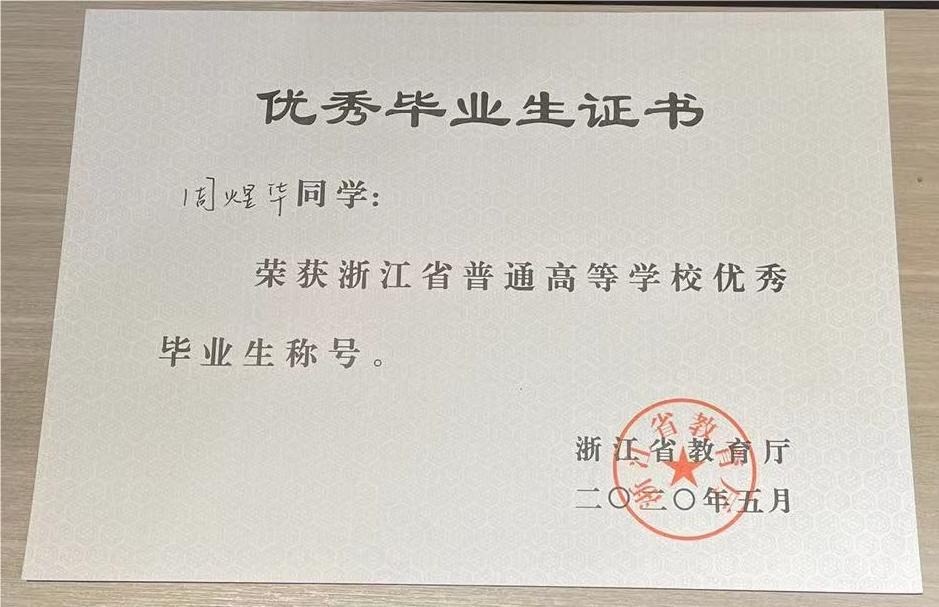 优秀毕业生证书
周煜华同学:
荣获浙江省普通高等学校优秀
毕业生称号。
浙江省教育厅
二〇二〇年五月
浙江省教育厅